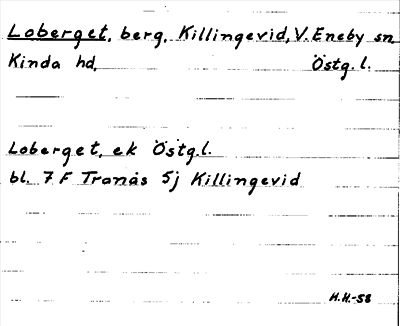 Loberget, berg, Killingevid, V. Eneby sn
Kinda hd, Östg. l.
Loberget, ek Östg.l.
bl. 7 F Tranås 5j Killingevid
H.H.-58